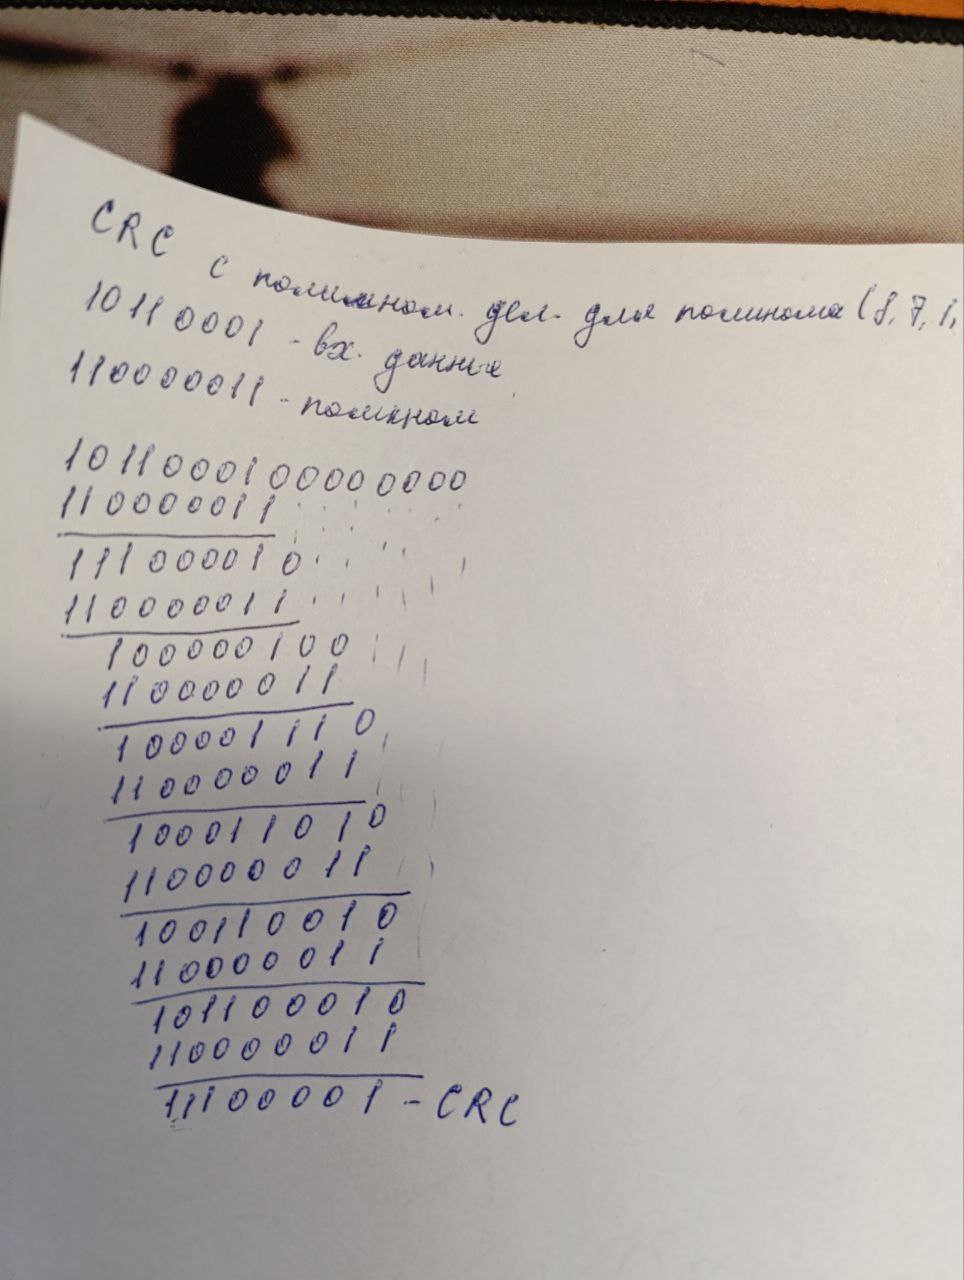 CRC с полимном. дел. для полинома (8, 7, 1,
10110001 - вх. данные
110000011 - полином
1011000100000000
110000011
111000010
110000011
100000100
110000011
100001110
110000011
100011010
110000011
100110010
110000011
101100010
110000011
11100001 - CRC